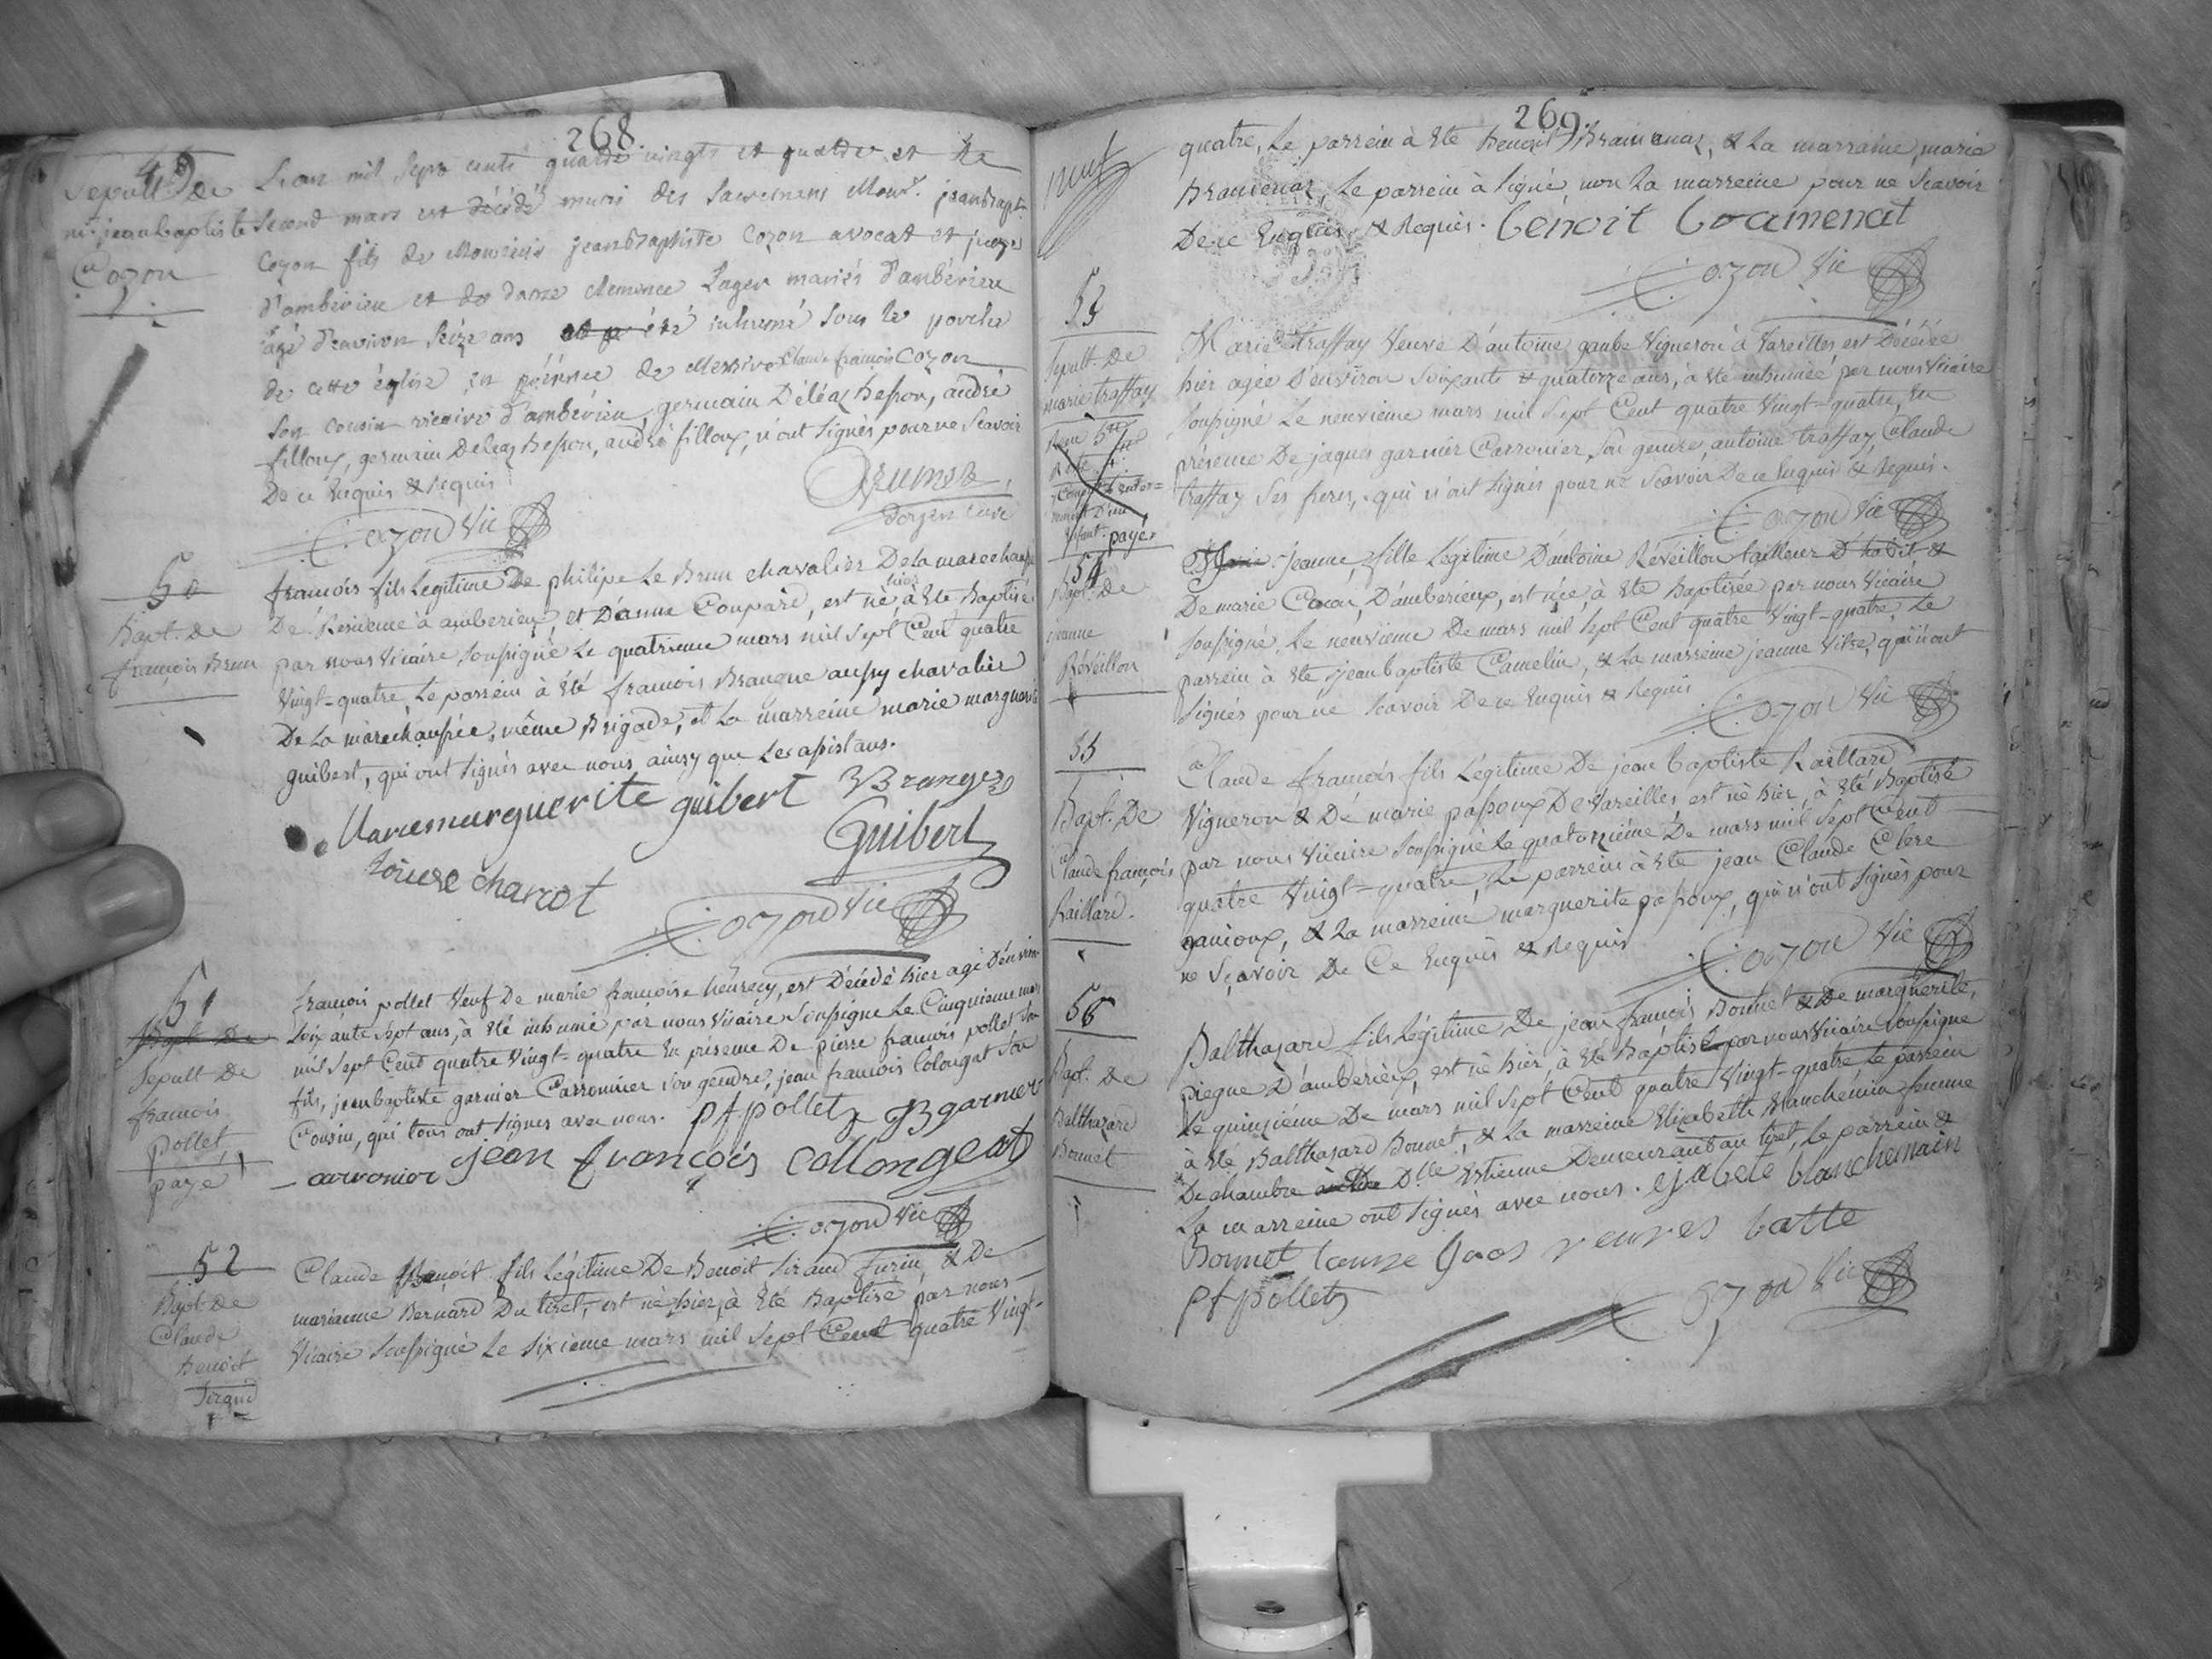 268
49
Sepult. De
mr. jeanbaptiste
Cozon
L'an mil sept cents quatre vingts et quatre et le
second mars est décédé muni des sacremens Monsr. jeanbapt.
Cozon fils de Monsieur jeanbaptiste Cozon avocat et juge
d'ambérieu et de dame clemence Lager mariés d'ambérieu
âgé d'environ seize ans été inhumé sous le porche
de cette église en présence de Messire Claude françois Cozon
son cousin vicaire d'ambérieu, germain Déléaz Besson, andré
filloux, germain Deleaz Besson, andré filloux, n'ont signés pour ne Scavoir
De ce Enquis & requis
Cozon Vic
doyen curé
50
Bapt. de
françois Brun
françois fils Legitime De philipe Le Brun chavalier De la marechaussée
De Residence à amberieux et D'anne Coupard, est né hier à Eté Baptisé
par nous Vicaire soussigné Le quatrieme mars mil sept Cent quatre
Vingt-quatre, Le parrein à Eté françois Branque aussy chavalier
De La marechaussée, même Brigade, et La marreine marie marguerite
guibert, qui ont signés avec nous ainsy que Les assistans.
Mariemarguerite guibert Brange
Guibert
Louise charcot
Cozon Vic
51
Bapt. De
Sepult De
francois
pollet
payé
francois pollet Veuf De marie francoise heurecy, est Décédé hier agé D'environ
soixante sept ans, à été inhumé par nous Vicaire Soussigné Le Cinquieme mars
mil sept Cent quatre Vingt-quatre En présence De pierre francois pollet son
fils, jeanbaptiste garnier Carronnier son gendre, jean francois Colongat son
Cousin, qui tous ont signés avec nous. pf pollet JB garnier
carronier jean françois Collongeat
Cozon Vic
52
Bapt. De
Claude
Benoit
Siraud
Claude Benoit fils Légitime De Benoit Siraud furin & De
marianne Bernard Du tiret, est né hier, à Eté Baptisé par nous
Vicaire soussigné Le sixieme mars mil sept Cent quatre Vingt-
269
quatre, Le parrein à Eté Benoit Bramenaz, & La marraine, marie
Bramenaz, Le parrein à signé, non La marreine pour ne Scavoir
De ce Enquis & Requis. Benoit bramenat
Cozon Vic
53
Sepult. De
marie traffay
payé
Marie traffay Veuve D'antoine gaube Vigneron à Vareilles est Décédée
hier agée D'environ Soixante & quatorze ans, à Eté inhumée par nous Vicaire
soussigné Le neuvieme mars mil sept Cent quatre Vingt-quatre, En
présence De jaques garnier Carronier, son gendre, antoine traffay, Claude
traffay ses freres, qui n'ont signés pour ne Scavoir De ce Enquis & Requis.
Cozon Vic
54
Bapt. De
jeanne
Réveillon
Jeanne, fille Légitime D'antoine Réveillon tailleur D'habit &
De marie Cocon, D'amberieux, est née, à Eté Baptisée par nous Vicaire
soussigné, Le neuvieme De mars mil sept Cent quatre Vingt-quatre, Le
parrein à Eté jeanbaptiste Camelin, & La marreine jeanne Vitre, qui n'ont
signés pour ne Scavoir De ce Enquis & Requis
Cozon Vic
55
Bapt. De
Claude françois
Raillard.
Claude françois fils Légitime De jean baptiste Raillard
Vigneron & De marie passoux De Vareilles est né hier, à Eté Baptisé
par nous Vicaire soussigné Le quatorzième De mars mil sept Cent
quatre Vingt-quatre, Le parrein à Eté jean Claude Clere
ganioux, & La marreine marguerite passoux, qui n'ont signés pour
ne Sçavoir De Ce Enquis & Requis
Cozon Vic
56
Bapt. De
Balthazard
Bonnet
Balthasard fils Légitime De jean francois Bonnet & De marguerite
piegne D'amberieux, est né hier, à Eté Baptisé par nous Vicaire soussigné
Le quinzième De mars mil sept Cent quatre Vingt-quatre, Le parrein
à Eté Balthasard Bonnet, & La marreine Elizabeth Blanchemin femme
De chambre De Dlle Estienne Demeurant au tiret, Le parrein &
La marreine ont signés avec nous. ejabete blanchemain
Bonnet
pf pollet
Cozon Vic